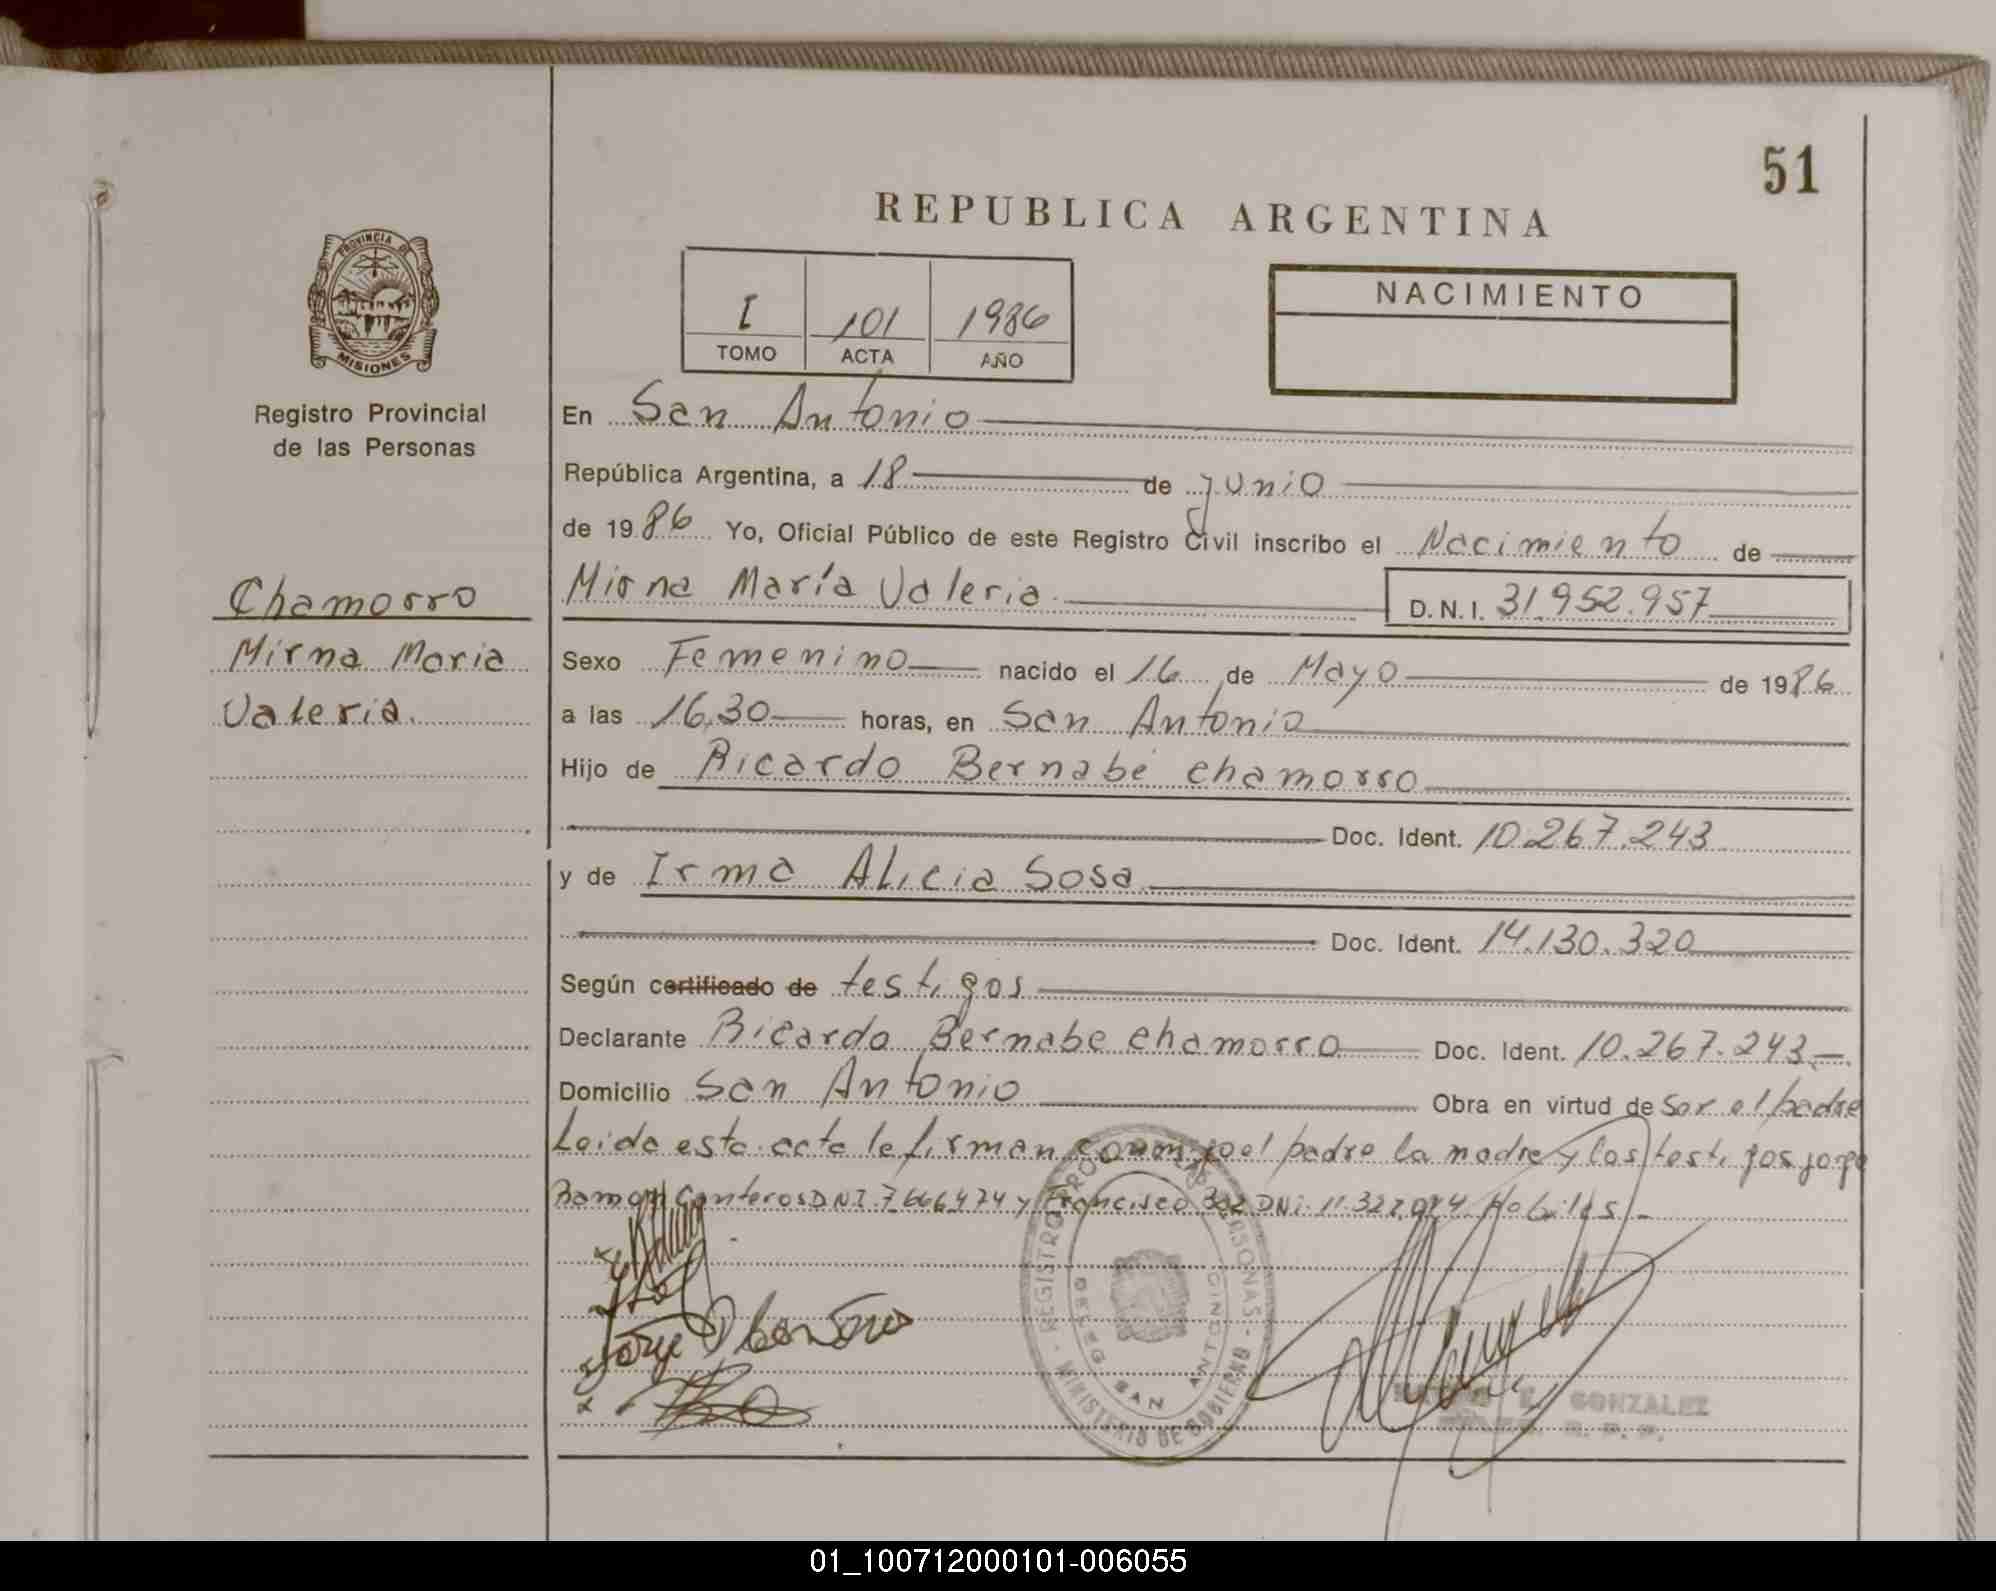 51
REPUBLICA ARGENTINA
PROVINCIA DE
MISIONES
Registro Provincial
de las Personas
I 101 1986
TOMO ACTA AÑO
NACIMIENTO
En San Antonio
República Argentina, a 18 de junio
de 1986 Yo, Oficial Público de este Registro Civil inscribo el Nacimiento de
Mirna María Valeria D.N.I. 31.952.957
Chamorro
Mirna Maria
Valeria.
Sexo Femenino nacido el 16 de Mayo de 1986
a las 16,30 horas, en San Antonio
Hijo de Ricardo Bernabé chamorro
Doc. Ident. 10.267.243
y de Irma Alicia Sosa
Doc. Ident. 14.130.320
Según certificado de testigos
Declarante Ricardo Bernabe chamorro Doc. Ident. 10.267.243
Domicilio San Antonio Obra en virtud de Ser el padre
Leida esta acta le firman conmigo el padre la madre y los testigos jorge
Ramon Canteros DNI 7666474 y Francisco DNi 11.322.914 Hobiles
REGISTRO PROV. DE LAS PERSONAS
DELEG. SAN ANTONIO
MINISTERIO DE GOBIERNO
Jorge Canteros
E. GONZALEZ
R. P. P.
01_100712000101-006055